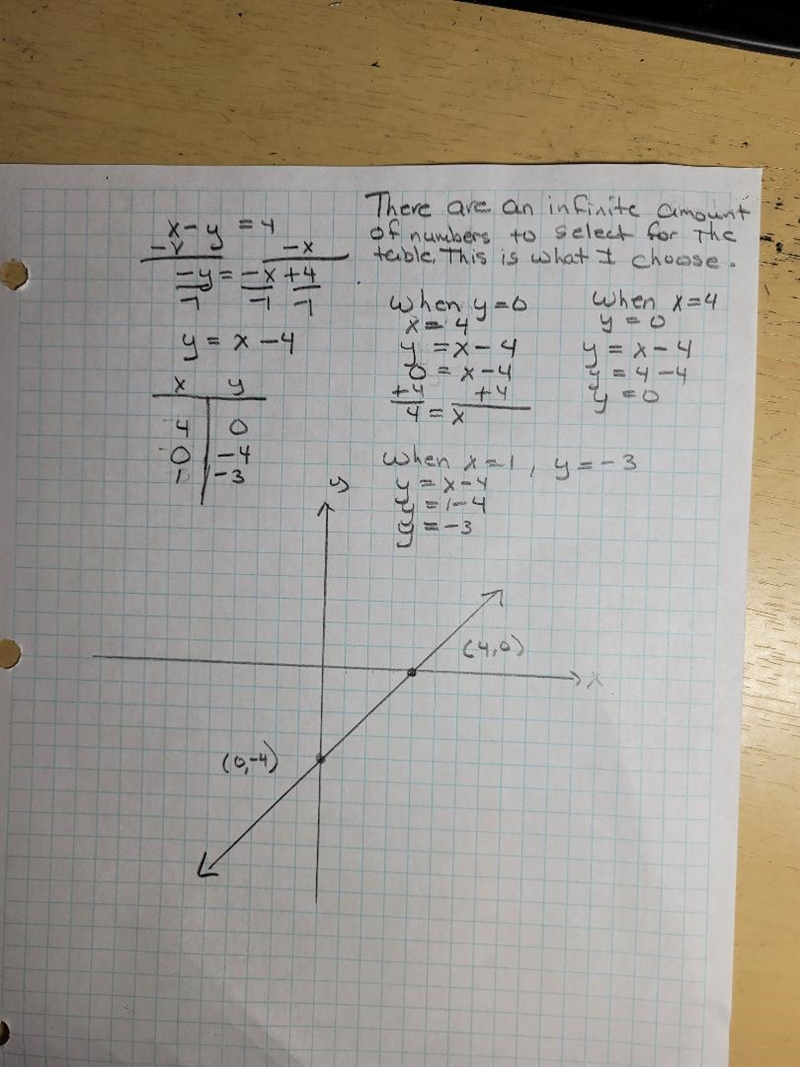 x - y = 4
-x -x
-y = -x + 4
-1 -1 -1
y = x - 4
x y
4 0
0 -4
1 -3
There are an infinite amount
of numbers to select for the
table. This is what I choose.
When y=0
x = 4
y = x - 4
0 = x - 4
+4 +4
4 = x
When x=4
y = 0
y = x - 4
y = 4 - 4
y = 0
When x=1, y = -3
y = x-4
y = 1-4
y = -3
y
(4,0)
x
(0,-4)